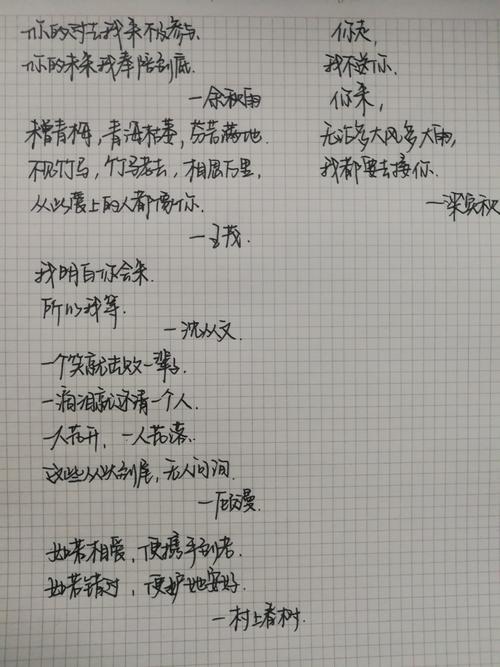 你的过去我来不及参与.
你的未来我奉陪到底.
—余秋雨
嗅青梅，青梅枯萎，芬芳满地.
不见竹马，竹马老去，相思万里，
从此爱上的人都像你.
—王茂.
我明白你会来.
所以我等.
—沈从文.
一个笑就击败一辈子.
一滴泪就还清一个人.
一人花开，一人花落.
这些从头到尾，无人问询.
—顾漫.
如若相爱，便携手到老.
如若错过，便护他安好.
—村上春树.
你走，
我不送你.
你来，
无论多大风多大雨，
我都要去接你.
—梁实秋